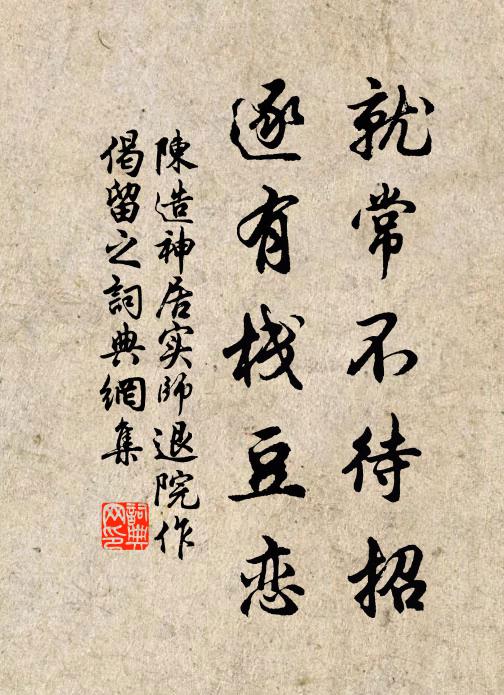 就常不待招
逐有栈豆恋
陳造神居实師退院作
偈留之詞典網集
詞典
网印